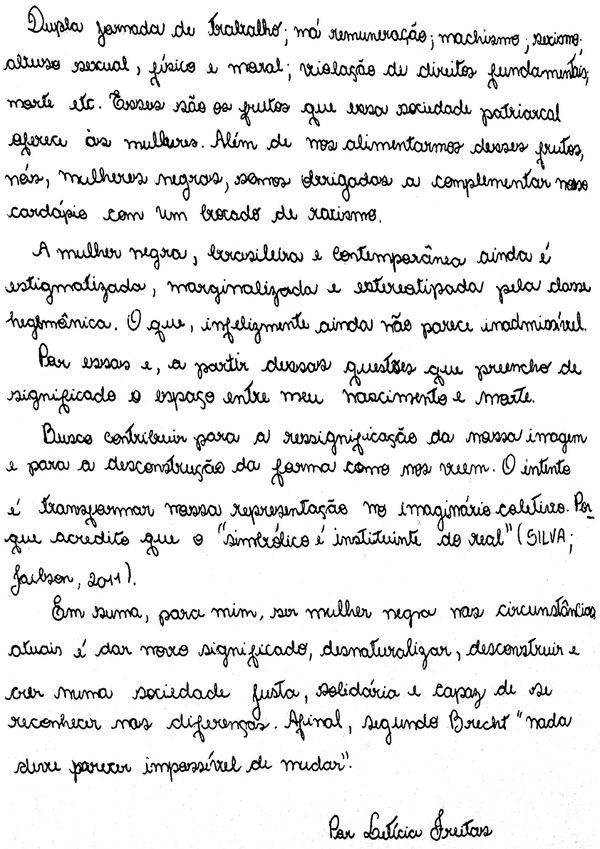 Dupla jornada de trabalho; má remuneração; machismo; sexismo;
abuso sexual, físico e moral; violação de direitos fundamentais;
morte etc. Esses são os frutos que essa sociedade patriarcal
oferece às mulheres. Além de nos alimentarmos desses frutos,
nós, mulheres negras, somos obrigadas a complementar nosso
cardápio com um bocado de racismo.
A mulher negra, brasileira e contemporânea ainda é
estigmatizada, marginalizada e estereotipada pela classe
hegemônica. O que, infelizmente ainda não parece inadmissível.
Por essas e, a partir dessas questões que preencho de
significado o espaço entre meu nascimento e morte.
Busco contribuir para a ressignificação da nossa imagem
e para a desconstrução da forma como nos veem. O intento
é transformar nossa representação no imaginário coletivo. Por
que acredito que o "simbólico é instituinte do real" (SILVA;
Jailson, 2011).
Em suma, para mim, ser mulher negra nas circunstâncias
atuais é dar novo significado, desnaturalizar, desconstruir e
crer numa sociedade justa, solidária e capaz de se
reconhecer nas diferenças. Afinal, segundo Brecht "nada
deve parecer impossível de mudar".
Por Letícia Freitas